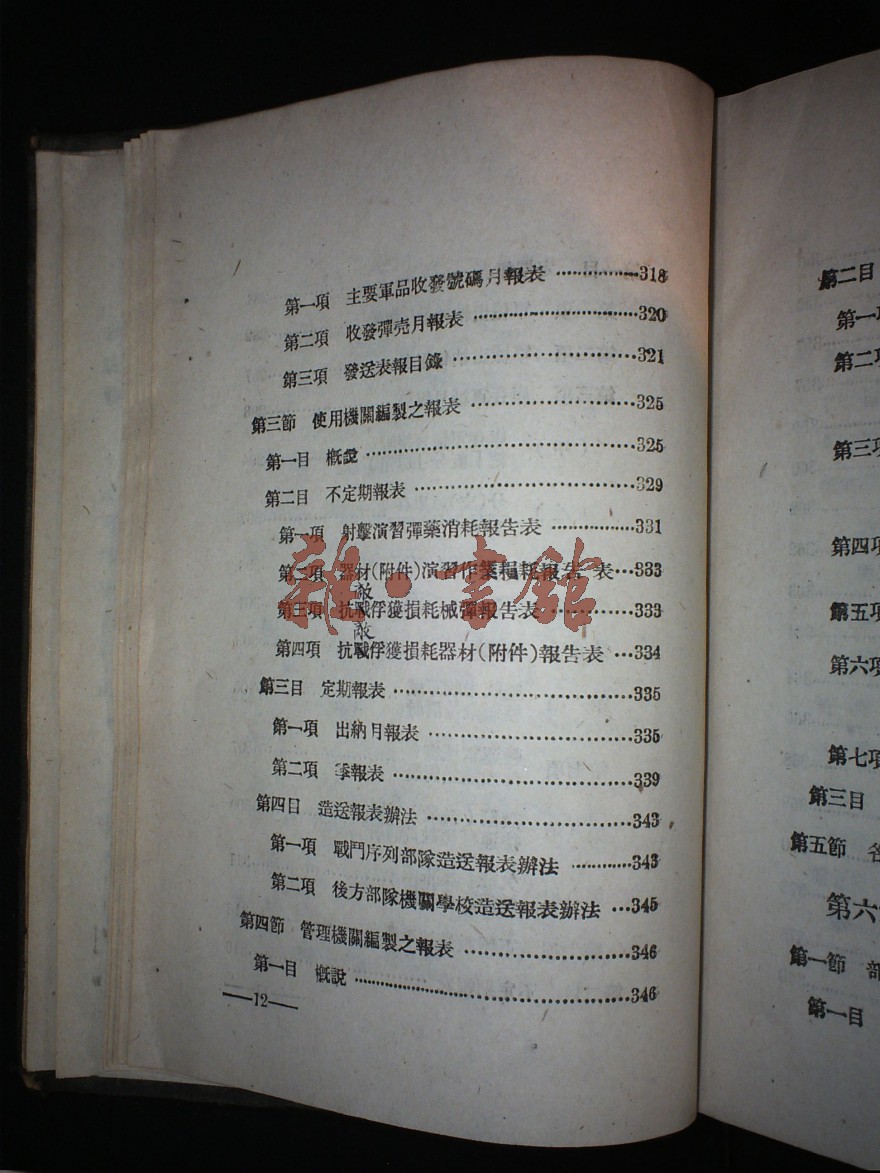 第一項 主要軍品收發號碼月報表 ……………318
第二項 收發彈壳月報表 ……………………320
第三項 發送表報目錄 ………………………321
第三節 使用機關編製之報表 ……………………325
第一目 概說 ……………………………………325
第二目 不定期報表 ……………………………329
第一項 射擊演習彈藥消耗報告表 ……………331
第二項 器材(附件)演習作業損耗報告表…333
敵
第三項 抗戰俘獲損耗械彈報告表 …………333
敵
第四項 抗戰俘獲損耗器材(附件)報告表 …334
第三目 定期報表 ………………………………335
第一項 出納月報表 …………………………335
第二項 季報表 ………………………………339
第四目 造送報表辦法 …………………………343
第一項 戰鬥序列部隊造送報表辦法 …………343
第二項 後方部隊機關學校造送報表辦法 …345
第四節 管理機關編製之報表 ……………………346
第一目 概說 ……………………………………346
—12—
雜·書館
第二目
第一
第二項
第三項
第四項
第五項
第六項
第七項
第三目
第五節
第六
第一節 部
第一目